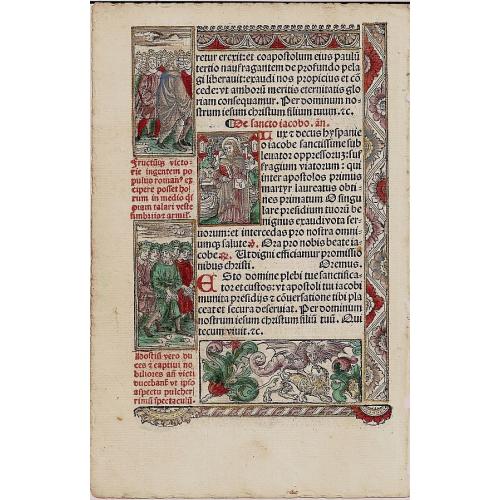 retur erexit: et coapostolum eius paulū
tertio naufragantem de profundo pela
gi liberauit: exaudi nos propicius et cō
cede: vt amborū meritis eternitatis glo
riam consequamur. Per dominum no-
strum iesum christum filium tuum. ⁊c.
De sancto iacobo. añ.
LUx ⁊ decus hyspanie
o iacobe sanctissime sub
leuator oppressorū: suf
fragium viatorum: qui
inter apostolos primus
martyr laureatus obti
nes primatum O singu
lare presidium tuorū be
nignus exaudi vota ser-
uorum: et intercedas pro nostra omni-
umqꝫ salute. ℣. Ora pro nobis beate ia-
cobe. ℟. Ut digni efficiamur promissio
nibus christi. Oremus.
ESto domine plebi tue sanctifica-
tor et custos: vt apostoli tui iacobi
munita presidijs ⁊ cōuersatione tibi pla
ceat et secura deseruiat. Per dominum
nostrum iesum christum filiū tuū. Qui
tecum viuit. ⁊c.
Fructūqꝫ victo-
rie ingentem po
pulus romanꝰ ex
cipere posset hos
rum in medio
talari veste
fimbrijs armis.
Hostiū vero du
ces ⁊ captiui no
biliores añ victi
ducebant vt ipso
aspectu pulcher
rimū spectaculū.